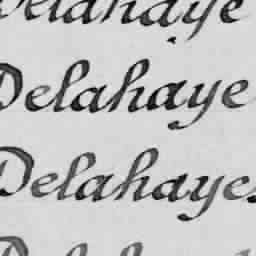 Delahaye
Delahaye
Delahayes